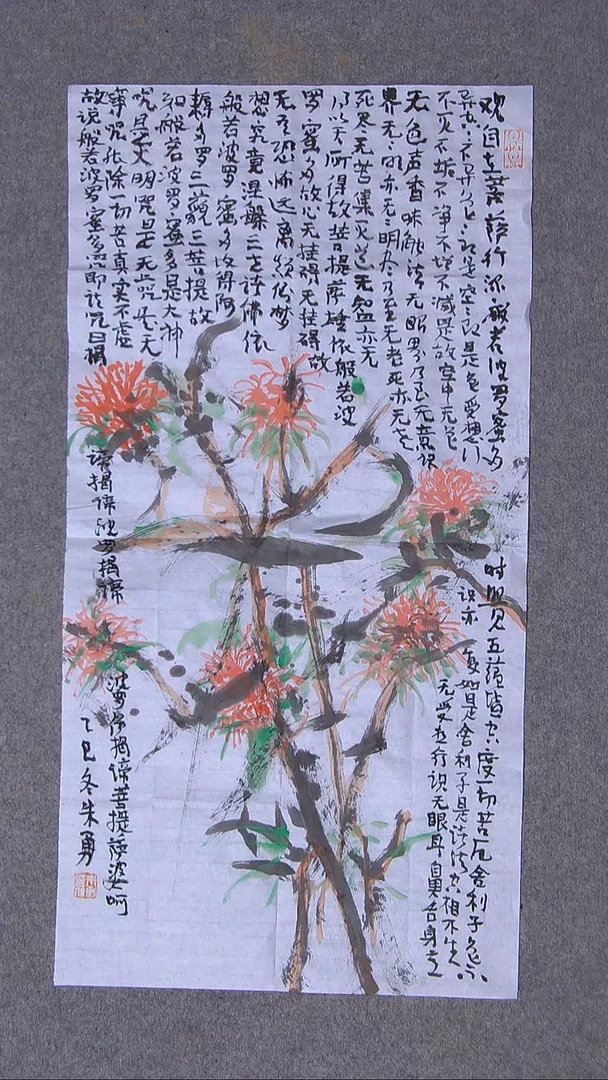 观自在菩萨行深般若波罗蜜多
时照见五蕴皆空度一切苦厄舍利子色不
异空空不异色色即是空空即是色受想行
识亦复如是舍利子是诸法空相不生
不灭不垢不净不增不减是故空中无色
无受想行识无眼耳鼻舌身意
无色声香味触法无眼界乃至无意识
界无无明亦无无明尽乃至无老死亦无老
死尽无苦集灭道无智亦无
以无所得故菩提萨埵依般若波
罗蜜多故心无挂碍无挂碍故
无有恐怖远离颠倒梦
想究竟涅槃三世诸佛依
般若波罗蜜多故得阿
耨多罗三藐三菩提故
知般若波罗蜜多是大神
咒是大明咒是无上咒是无
等咒能除一切苦真实不虚
故说般若波罗蜜多咒即说咒曰揭
谛揭谛波罗揭谛
波罗僧揭谛菩提萨婆呵
乙巳冬朱勇